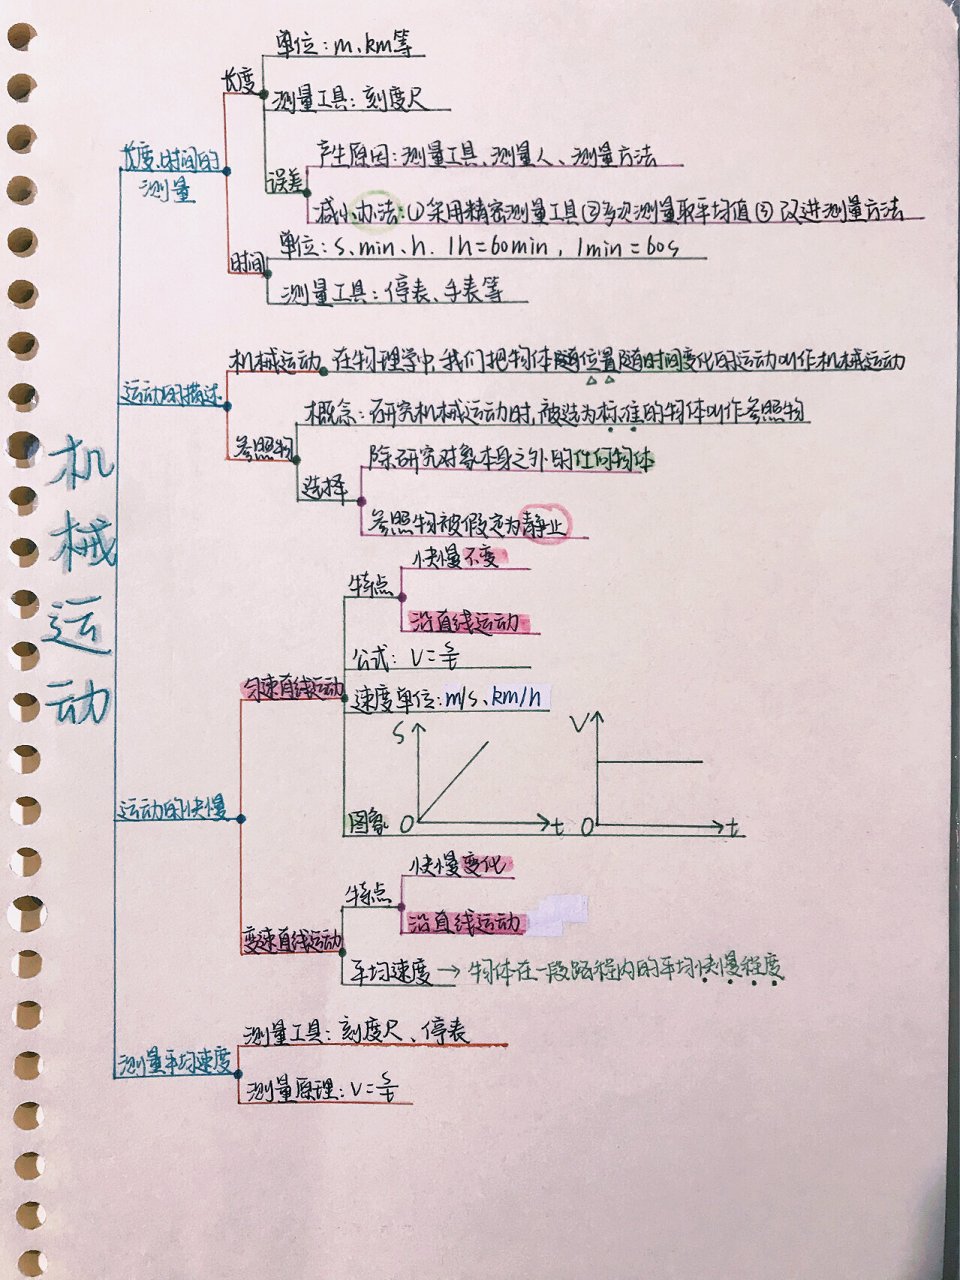 机械运动
长度、时间的
测量
长度
单位：m、km等
测量工具：刻度尺
误差
产生原因：测量工具、测量人、测量方法
减小办法：①采用精密测量工具②多次测量取平均值③改进测量方法
时间
单位：s、min、h. 1h=60min，1min=60s
测量工具：停表、手表等
运动的描述
机械运动 在物理学中,我们把物体随位置随时间变化的运动叫作机械运动
参照物
概念：研究机械运动时,被选为标准的物体叫作参照物
选择
除研究对象本身之外的任何物体
参照物被假定为静止
运动的快慢
匀速直线运动
特点
快慢不变
沿直线运动
公式：V=s/t
速度单位：m/s、km/h
图象
S
O
t
V
O
t
变速直线运动
特点
快慢变化
沿直线运动
平均速度→物体在一段路程内的平均快慢程度
测量平均速度
测量工具：刻度尺、停表
测量原理：V=s/t